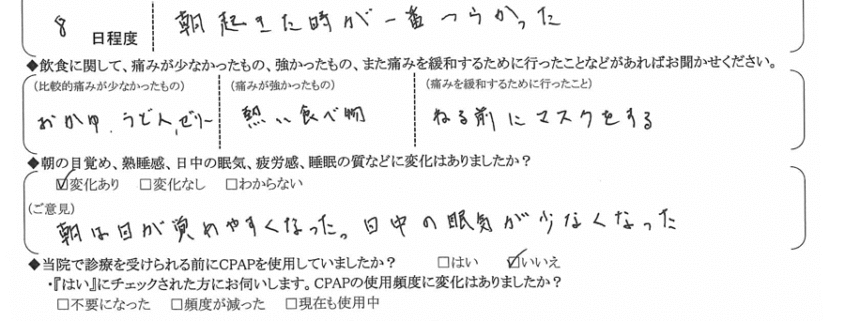 8 日程度 朝起きた時が一番つらかった
◆飲食に関して、痛みが少なかったもの、強かったもの、また痛みを緩和するために行ったことなどがあればお聞かせください。
(比較的痛みが少なかったもの) (痛みが強かったもの) (痛みを緩和するために行ったこと)
おかゆ、うどん、ゼリー 熱い食べ物 ねる前にマスクをする
◆朝の目覚め、熟睡感、日中の眠気、疲労感、睡眠の質などに変化はありましたか？
☑変化あり □変化なし □わからない
(ご意見)
朝は目が覚めやすくなった。日中の眠気が少なくなった
◆当院で診療を受けられる前にCPAPを使用していましたか？ □はい ☑いいえ
・『はい』にチェックされた方にお伺いします。CPAPの使用頻度に変化はありましたか？
□不要になった □頻度が減った □現在も使用中